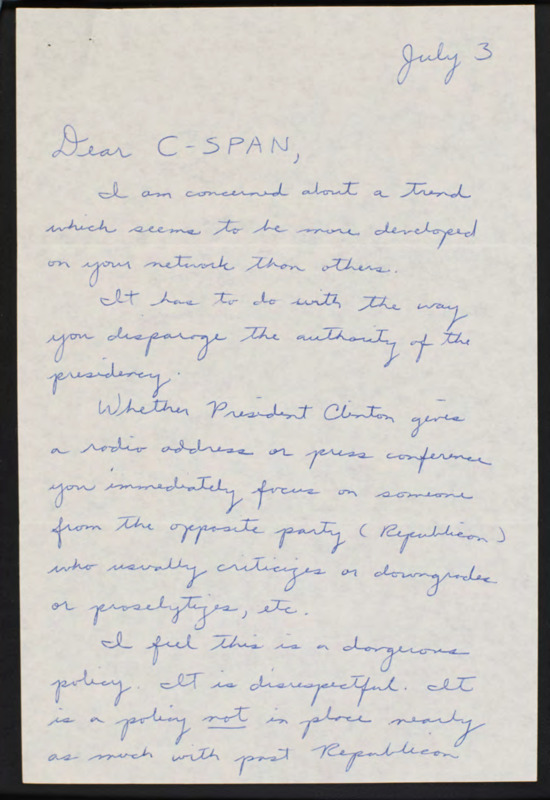 July 3
Dear C-SPAN,
I am concerned about a trend
which seems to be more developed
on your network than others.
It has to do with the way
you disparage the authority of the
presidency.
Whether President Clinton gives
a radio address or press conference
you immediately focus on someone
from the opposite party (Republican)
who usually criticizes or downgrades
or proselytizes, etc.
I feel this is a dangerous
policy. It is disrespectful. It
is a policy not in place nearly
as much with past Republican